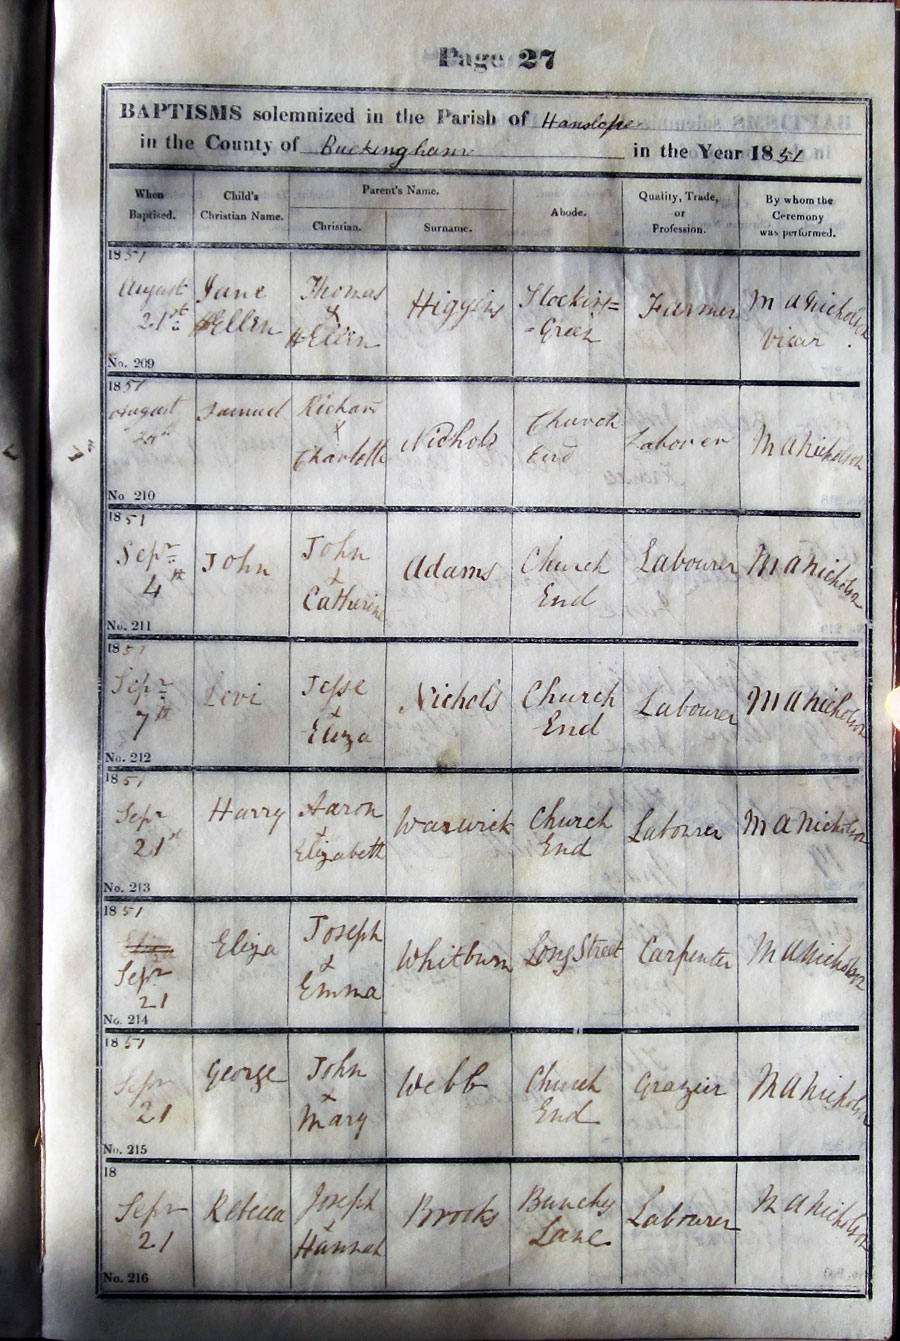 Page 27
BAPTISMS solemnized in the Parish of Hanslope
in the County of Buckingham in the Year 1851
When Baptised.
Child's Christian Name.
Parent's Name.
Christian.
Surname.
Abode.
Quality, Trade, or Profession.
By whom the Ceremony was performed.
1851
August 21st
Jane Ellen
Thomas & Ellen
Higgins
Stocking= -Green
Farmer
M A Nicholson Vicar.
No. 209
1851
August
Samuel
Richard & Charlotte
Nichols
Church End
Laborer
M A Nicholson
No. 210
1851
Sepr 4th
John
John & Catherine
Adams
Church End
Labourer
M A Nicholson
No. 211
1851
Sepr 7th
Levi
Jesse & Eliza
Nichols
Church End
Labourer
M A Nicholson
No. 212
1851
Sepr 21st
Harry
Aaron & Elizabeth
Warwick
Church End
Labourer
M A Nicholson
No. 213
1851
Sepr 21
Eliza
Joseph & Emma
Whitburn
Long Street
Carpenter
M A Nicholson
No. 214
1851
Sepr 21
George
John & Mary
Webb
Church End
Grazier
M A Nicholson
No. 215
18
Sepr 21
Rebecca
Joseph & Hannah
Brooks
Bunchy Lane
Labourer
M A Nicholson
No. 216